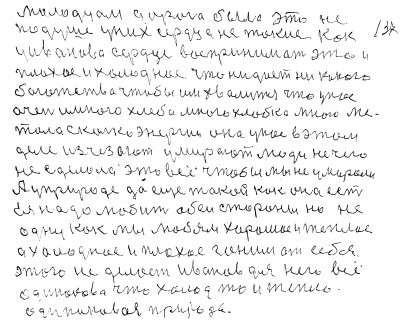 молодчам дорога была это не
подуше уних сердца не такие как
уиванова сердце воспринимат это и
плохое и холодное что нидает ни какого
богатства чтобы им хвалится что унас
очен и много хлеба и много хлобка много ме-
тала сколько энергии она унас в этом
деле изчезают умирают люди нечего
не сделал это всё чтобы мы не умирали
А уприроде да еще такой как она ест
ея надо любит обеи стороны но не
одну как мы любям харошае и теплое
а холодное и плохое гоним от себя.
этого не делает Иванов для него всё
одинакова что холод то и тепло.
одинаковая природа.
137